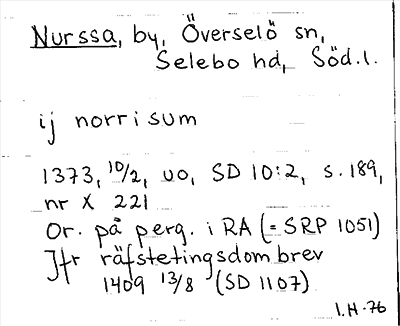 Nurssa, by, Överselö sn,
Selebo hd, Söd.l.
ij norrisum
1373, 10/2, uo, SD 10:2, s. 189,
nr X 221
Or. på perg. i RA (= SRP 1051)
Jfr räfstetingsdombrev
1409 13/8 (SD 1107)
I.H-76